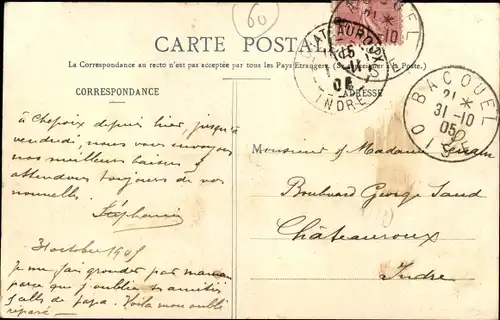 60
CARTE POSTALE
La Correspondance au recto n'est pas acceptée par tous les Pays Etrangers. (Se renseigner à la Poste.)
CORRESPONDANCE
ADRESSE
CHATEAUROUX
15
05
INDRE
BACOUEL
21 *
31 -10
05
OISE
à Chepoix depuis hier, jusqu'à
vendredi, nous vous envoyons
nos meilleurs baisers &
attendons toujours de vos
nouvelles.
Stéphanie
31 octobre 1905
Je me fais gronder par maman
parce que j'oublie les amitiés
de papa. Voila mon oubli
réparé
Monsieur & Madame
Boulevard George Sand
Châteauroux
Indre